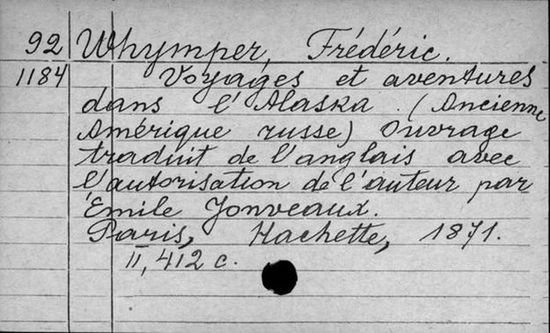 92 Whymper, Frédéric.
1184 Voyages et aventures
dans l'Alaska. (Ancienne
Amérique russe) Ouvrage
traduit de l'anglais avec
l'autorisation de l'auteur par
Émile Jonveaux.
Paris, Hachette, 1871.
II, 412 c.